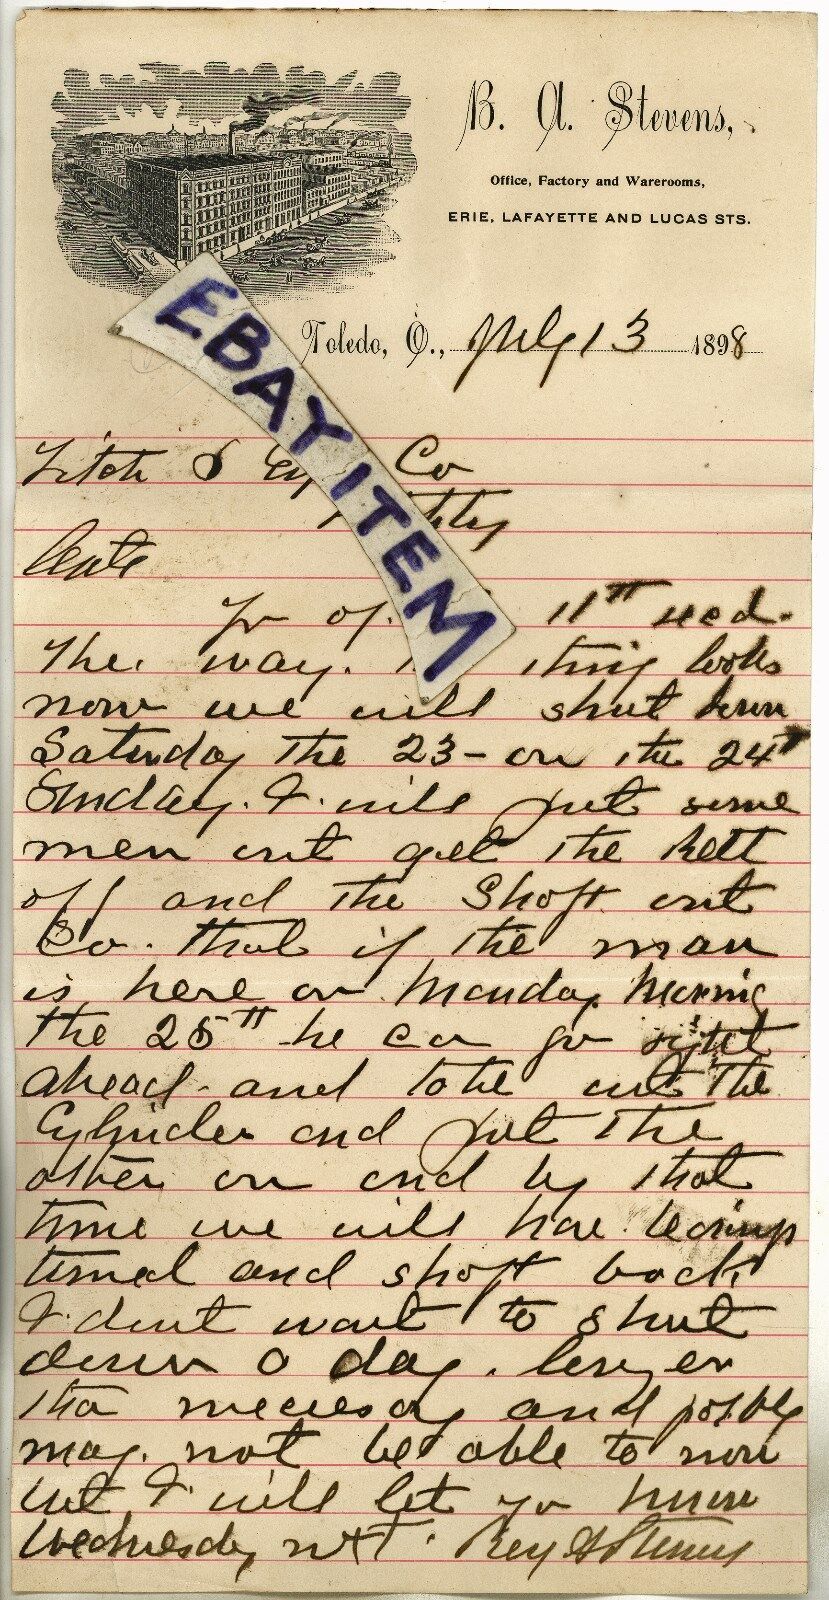 B. A. Stevens,
Office, Factory and Warerooms,
ERIE, LAFAYETTE AND LUCAS STS.
Toledo, O., July 13 1898
EBAY ITEM
Co
Gents
Yr of 11th recd.
The way thing looks
now we will shut down
Saturday the 23 - on the 24th
Sunday. I will put some
men out get the Belt
off and the Shaft out
So that if the man
is here on Monday Morning
the 25th he can go right
ahead - and take out the
Cylinder and put the
other on and by that
time we will have bearings
turned and shaft back
I dont want to shut
down a day longer
than necessay and possbly
may not be able to now
but I will let yo know
Wednesday nxt. Stevens